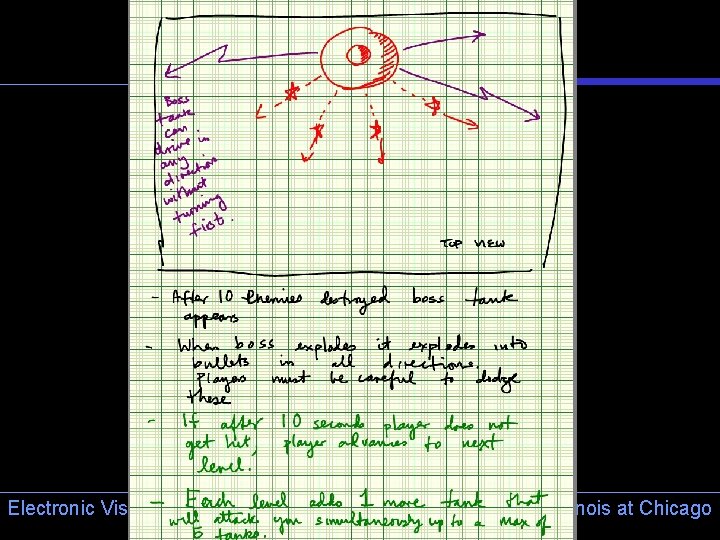 Boss
tank
can
drive in
any
direction
without
turning
fist.
TOP VIEW
- After 10 Enemies destroyed boss tank
appears
- When boss explodes it explodes into
bullets in all directions.
Players must be careful to dodge
these
- If after 10 seconds player does not
get hit, player advances to next
level.
- Each level adds 1 more tank that
will attack you simultaneously up to a max of
5 tanks.
Electronic Vis
nois at Chicago